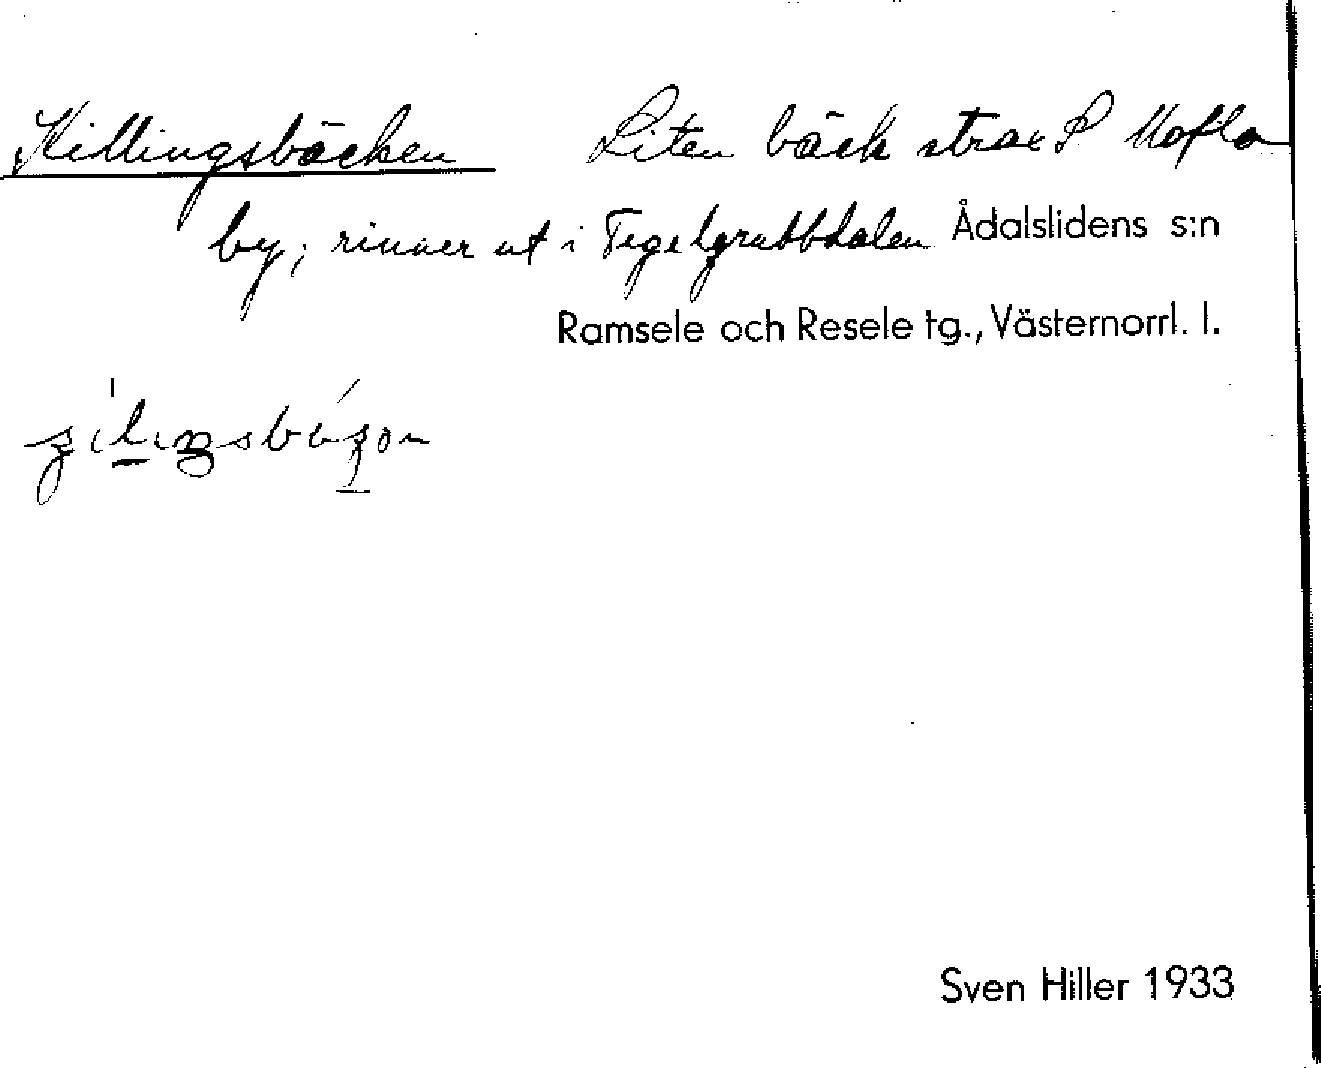 Killingsbäcken Liten bäck strax S Mofla
by; rinner ut i Tegelgrubbdalen Ådalslidens s:n
Ramsele och Resele tg., Västernorrl. l.
Sven Hiller 1933